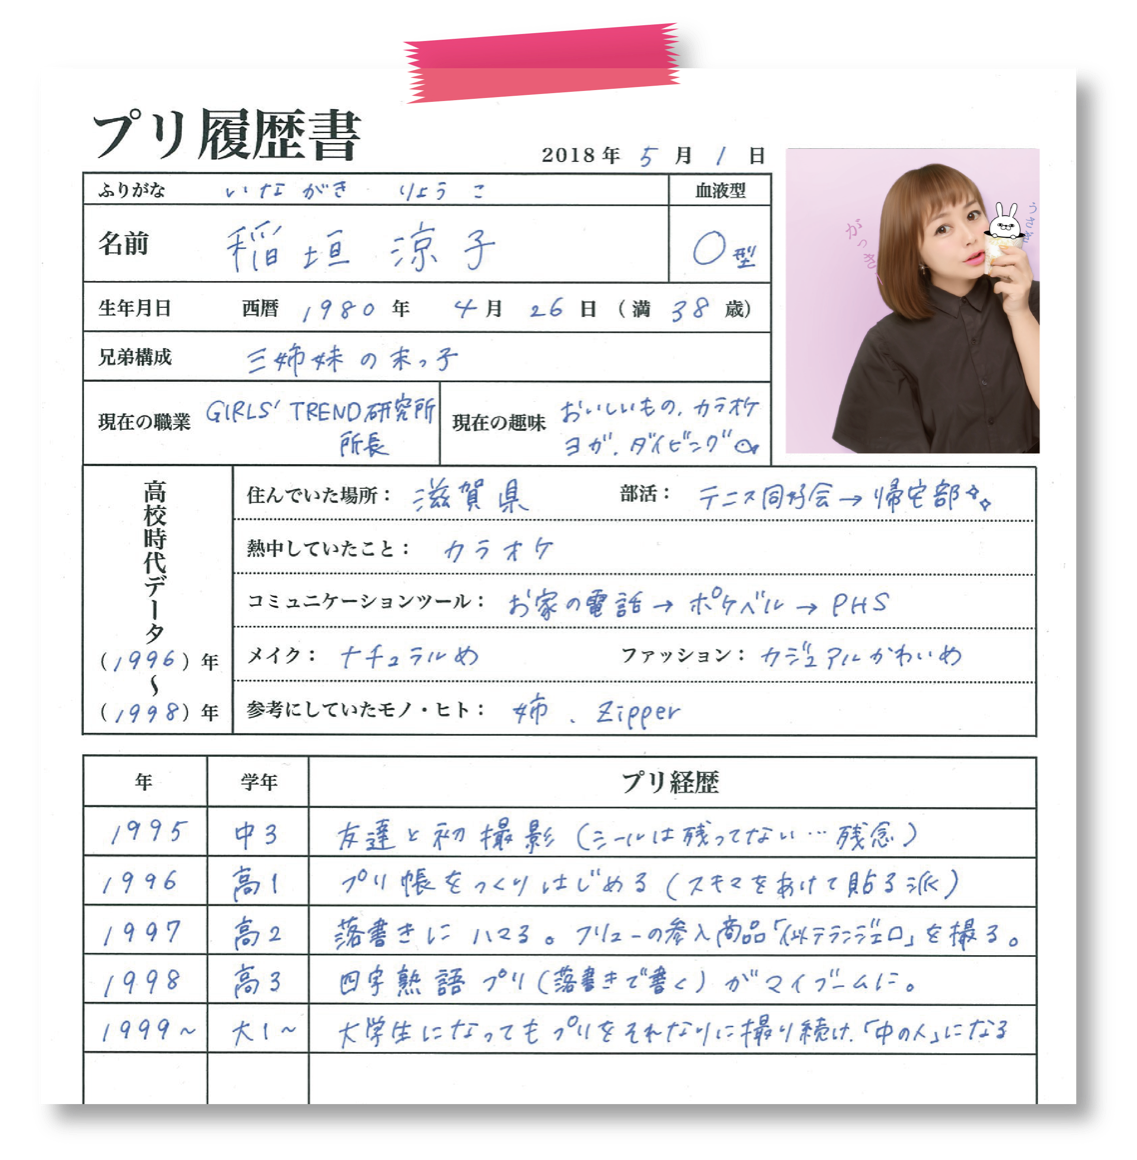 プリ履歴書
2018年 5月 1日
ふりがな いながき りょうこ 血液型
名前 稲垣 涼子 O型
生年月日 西暦 1980年 4月 26日 (満 38歳)
兄弟構成 三姉妹の末っ子
現在の職業 GIRLS' TREND研究所
所長
現在の趣味 おいしいもの、カラオケ
ヨガ、ダイビング
がっきー
うさぎ
高校時代データ
(1996)年
〜
(1998)年
住んでいた場所: 滋賀県 部活: テニス同好会→帰宅部
熱中していたこと: カラオケ
コミュニケーションツール: お家の電話→ポケベル→PHS
メイク: ナチュラルめ ファッション: カジュアルかわいめ
参考にしていたモノ・ヒト: 姉、Zipper
年 学年 プリ経歴
1995 中3 友達と初撮影(シールは残ってない…残念)
1996 高1 プリ帳をつくりはじめる(スキマをあけて貼る派)
1997 高2 落書きにハマる。フリューの参入商品「似テランジェロ」を撮る。
1998 高3 四字熟語プリ(落書きで書く)がマイブームに。
1999~ 大1~ 大学生になってもプリをそれなりに撮り続け、「中の人」になる